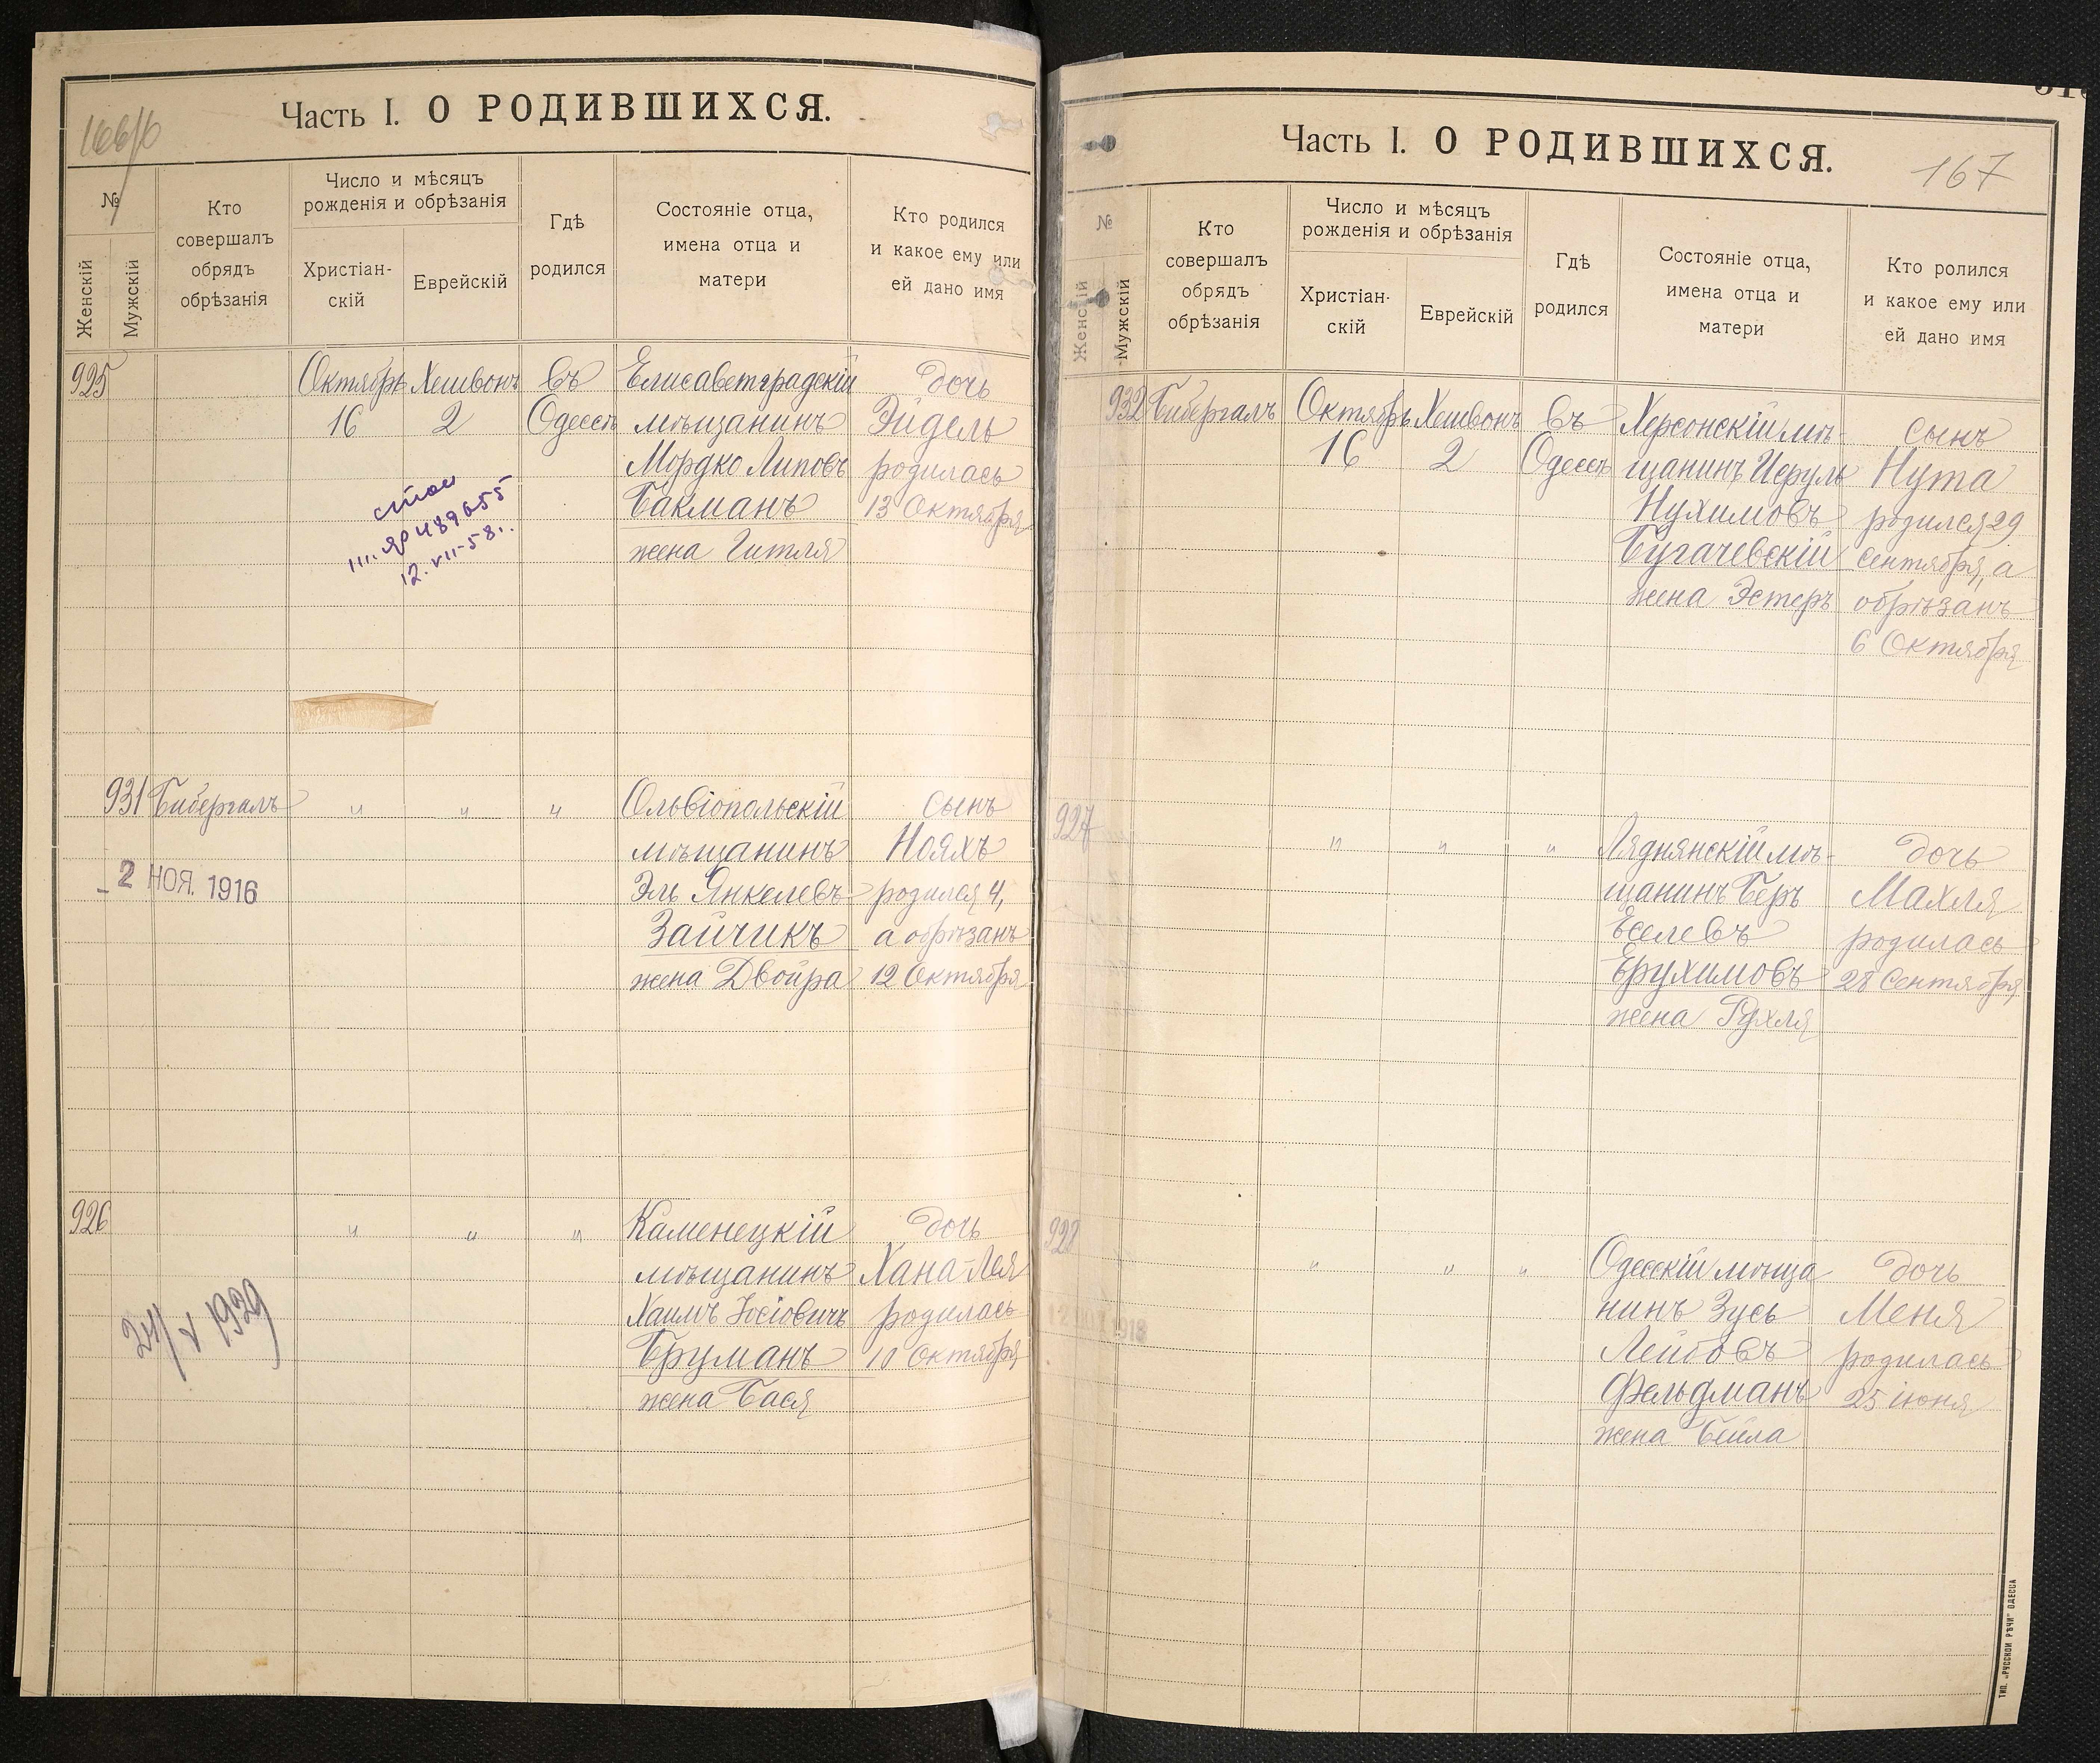 Часть I. О РОДИВШИХСЯ.
№
Женскій
Мужскій
Кто
совершалъ
обрядъ
обрѣзанія
Число и мѣсяцъ
рожденія и обрѣзанія
Христіан-
скій
Еврейскій
Гдѣ
родился
Состояніе отца,
имена отца и
матери
Кто родился
и какое ему или
ей дано имя
925
Октябрь
16
Хешвонъ
2
въ
Одессѣ
Елисаветградскій
мѣщанинъ
Мордко Липовъ
Бакманъ
жена Гитля
дочь
Эйдель
родилась
13 Октября
12. VII-58.
931
Бибергалъ
"
"
"
Ольвіопольскій
мѣщанинъ
Эль Янкелевъ
Зайчикъ
жена Двойра
сынъ
Нояхъ
родился 4,
а обрѣзанъ
12 Октября
2 НОЯ. 1916
926
"
"
"
Каменецкій
мѣщанинъ
Хаимъ Іосіовичъ
Бруманъ
жена Бася
дочь
Хана-Лея
родилась
10 Октября
24/V 1939
Часть I. О РОДИВШИХСЯ.
167
№
Женскій
Мужскій
Кто
совершалъ
обрядъ
обрѣзанія
Число и мѣсяцъ
рожденія и обрѣзанія
Христіан-
скій
Еврейскій
Гдѣ
родился
Состояніе отца,
имена отца и
матери
Кто ролился
и какое ему или
ей дано имя
932
Бибергалъ
Октябрь
16
Хешвонъ
2
въ
Одессѣ
Херсонскій мѣ-
щанинъ Исруль
Нухимовъ
Бугачевскій
жена Эстеръ
сынъ
Нута
родился 29
сентября, а
обрѣзанъ
6 Октября
927
"
"
"
Ляднянскій мѣ-
щанинъ Беръ
Еселевъ
Ерухимовъ
жена Рухля
дочь
Махля
родилась
28 Сентября
928
"
"
"
Одесскій мѣща
нинъ Зусь
Лейбовъ
Фельдманъ
жена Бейла
дочь
Меня
родилась
25 іюня
ТИП. „РУССКОЙ РѢЧИ" ОДЕССА